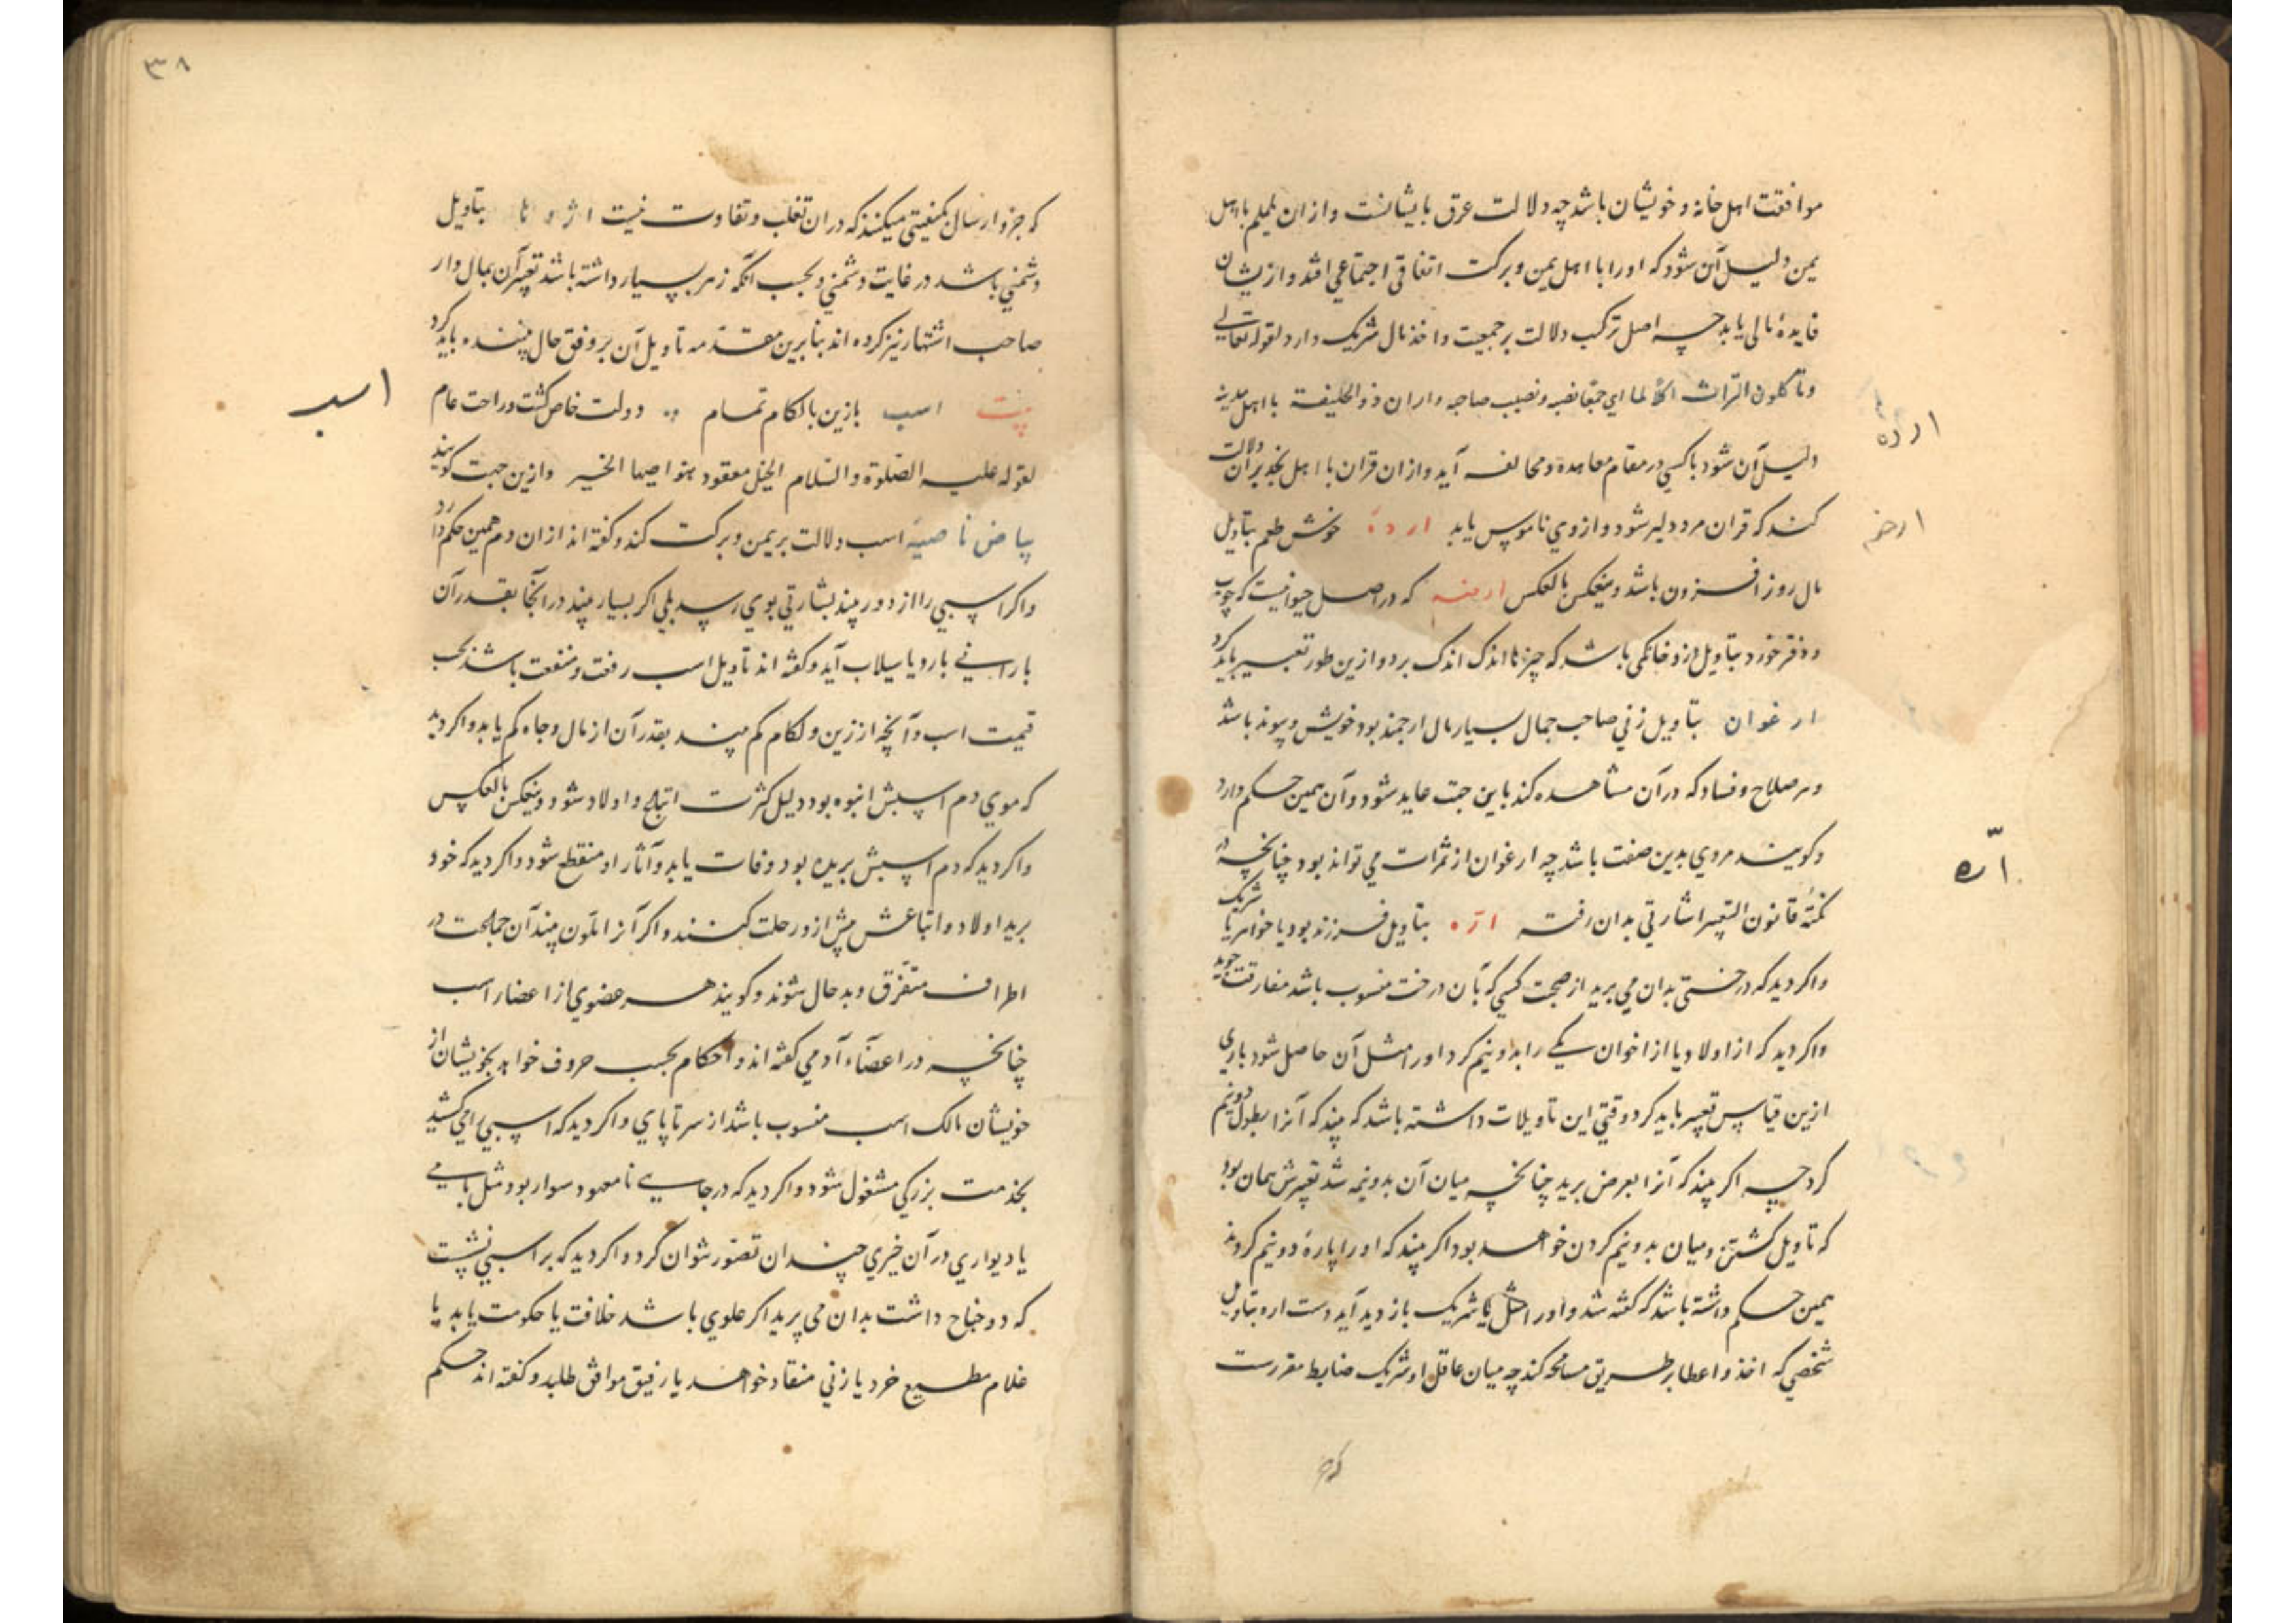 موافقت اهل خانه و خویشان باشد چه دلالت عرق بایشانست و از ان یلملم با اهل
یمن دلیل آن شود که او را با اهل یمن و برکت اتفاقی اجتماعی افتد و ازیشان
فایدهٔ مالی یابد چه اصل ترکیب دلالت بر جمعیت و اخذ مال شریک دارد لقوله تعالی
وتأکلون التراث اکلا لما ای جمّعا نصیبه و نصیب صاحبه و از ان ذو الحلیفة با اهل مدینه
دلیل آن شود با کسی در مقام معاهده و محالفه آید و از ان قران با اهل نجد بر ان دلالت
کند که قران مرد دلیر شود و از وی ناموس یابد ارده خوش طعم بتاویل
مال روز افزون باشد و ینعکس بالعکس ارضه که در اصل حیوانیست که چوب
و دفتر خورد بتاویل دزد خانگی باشد که چیزها اندک اندک برد و ازین طور تعبیر باید کرد
ارغوان بتاویل زنی صاحب جمال بسیار مال ارجمند بود خویش و پیوند باشد
و هر صلاح و فساد که در آن مشاهده کند باین جهت عاید شود و آن همین حکم دارد
و گویند مردی بدین صفت باشد چه ارغوان از ثمرات می تواند بود چنانچه در
نکتهٔ قانون التعبیر اشارتی بدان رفت ارّه بتاویل فرزند بود یا خواهر یا شریک
و اکر دید که درختی بدان می برید از صحبت کسی که بآن درخت منسوب باشد مفارقت جوید
و اکر دید که از اولاد یا از اخوان یکی را بدو نیم کرد او را مثل آن حاصل شود باری
ازین قیاس تعبیر باید کرد و قتی این تاویلات داشته باشد که بیند که آنرا بطول دو نیم
کرد چه اکر بیند که آنرا بعرض برید چنانچه میان آن بدو نیمه شد تعبیرش همان بود
که تاویل کشتن و میان بدو نیم کردن خواهد بود اکر بیند که او را پاره دو نیم کردند
همین حکم داشته باشد که گفته شد و او را مثل یا شریک بازدید آید دست اره بتاویل
شخصی که اخذ و اعطا بر طریق مسامحه کند چه میان عاقل او شریک ضابط مقررست
ارده
ارضه
ارّه
که جزو
۳۸
که جزو ارسال کیفیتی میکنند که در ان تغلب و تفاوت نیست اژدها بتاویل
دشمنی باشد در غایت دشمنی و بحسب آنکه زهر بسیار داشته باشد تعبیر آن بمال دار
صاحب اشتهار نیز کرده اند بنا برین مقدّمه تاویل آن بر وفق حال بیننده باید کرد
بیت اسب با زین با لکام تمام دولت خاص کشت و راحت عام
لقوله علیه الصّلوة والسّلام الخیل معقود بنواصیها الخیر و ازین جهت کویند
بیاض ناصیهٔ اسب دلالت بر یمن و برکت کند و کفته اند از ان دم همین حکم دارد
و اکر اسبی را از دور بیند بشارتی بوی رسد بلی اکر بسیار بیند در آنجا بقدر آن
بارانی بارد یا سیلاب آید و کفته اند تاویل اسب رفعت و منفعت باشد بحسب
قیمت اسب و آنچه از زین و لکام کم بیند بقدر آن از مال و جاه کم یابد و اکر دید
که موی دم اسبش انبوه بود دلیل کثرت اتباع و اولاد شود و ینعکس بالعکس
و اکر دید که دم اسبش بریده بود وفات یابد و آثار او منقطع شود و اکر دید که خود
برید اولاد و اتباعش پیش ازو رحلت کنند و اکر آنرا ملون بیند آن جماعت در
اطراف متفرّق و بد حال شوند و کویند هر عضوی از اعضاء اسب
چنانچه در اعضاء آدمی کفته اند و احکام بحسب حروف خواهد بخویشان از
خویشان مالک اسب منسوب باشد از سر تا پای و اکر دید که اسبی را می کشید
بخدمت بزرکی مشغول شود و اکر دید که در جایی نا معهود سوار بود مثل بامی
یا دیواری در آن خیری چندان تصوّر نتوان کرد و اکر دید که بر اسبی نشست
که دو جناح داشت بدان می پرید اکر علوی باشد خلافت یا حکومت یابد یا
غلام مطیع خرد یا زنی منقاد خواهد یا رفیق موافق طلبد و کفته اند حکم
اسب